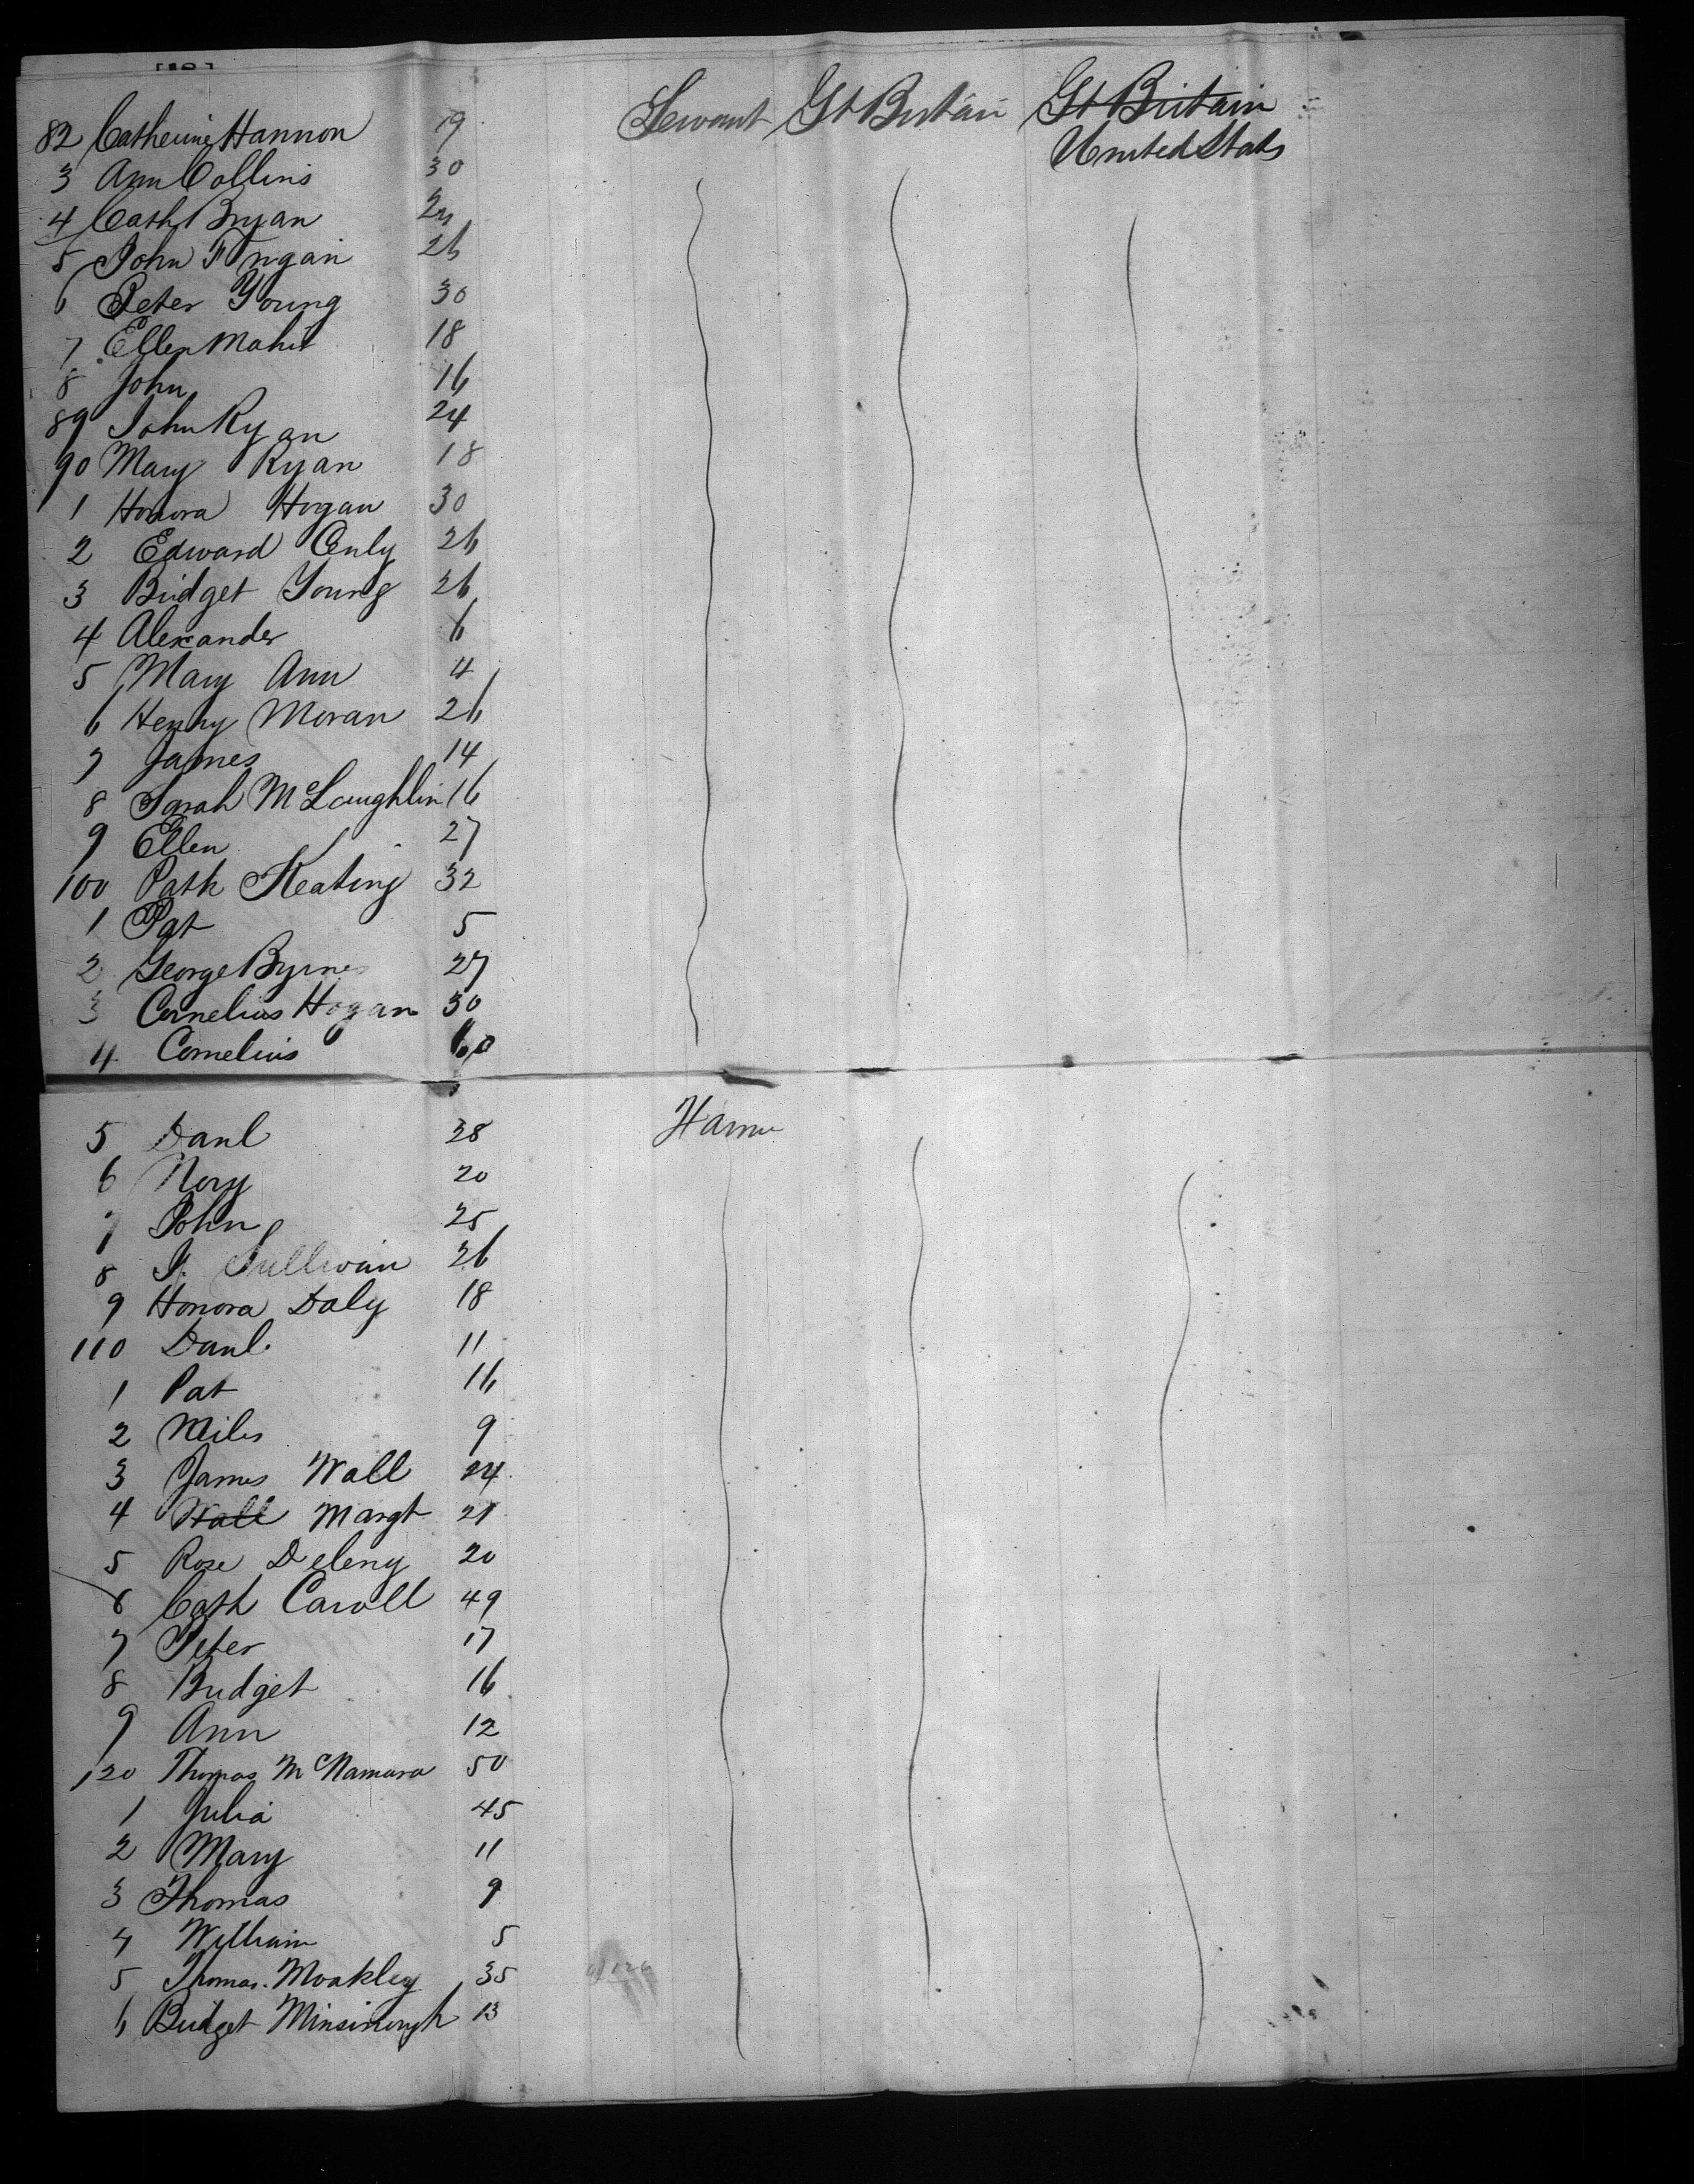 82 Catherine Hannon 19 Servant Gt Britain Gt Britain
United Stats
3 Ann Collins 30
4 Cath Bryan
5 John 26
6 Peter Young 30
7 Ellen Maher 18
8 John 16
89 John Ryan 24
90 Mary Ryan 18
1 Honora Hogan 30
2 Edward 26
3 Bridget Young 26
4 Alexander 6
5 Mary Ann 4
6 Henry Moran 26
7 James 14
8 Sarah McLaughlin 16
9 Ellen 27
100 Patk Keating 32
1 Pat 5
2 George Byrnes 27
3 Cornelius Hogan 30
4 Cornelius 60
5 Danl 38
6 Nory 20
7 John 25
8 J. Sullivan 26
9 Honora Daly 18
110 Danl. 11
1 Pat 16
2 Miles 9
3 James Wall 24
4 Wall Margt 21
5 Rose Deleny 20
6 Cath Caroll 49
7 Peter 17
8 Bridget 16
9 Ann 12
120 Thomas McNamara 50
1 Julia 45
2 Mary 11
3 Thomas 9
4 William 5
5 Thomas. Moakley 35
6 Bridget 13